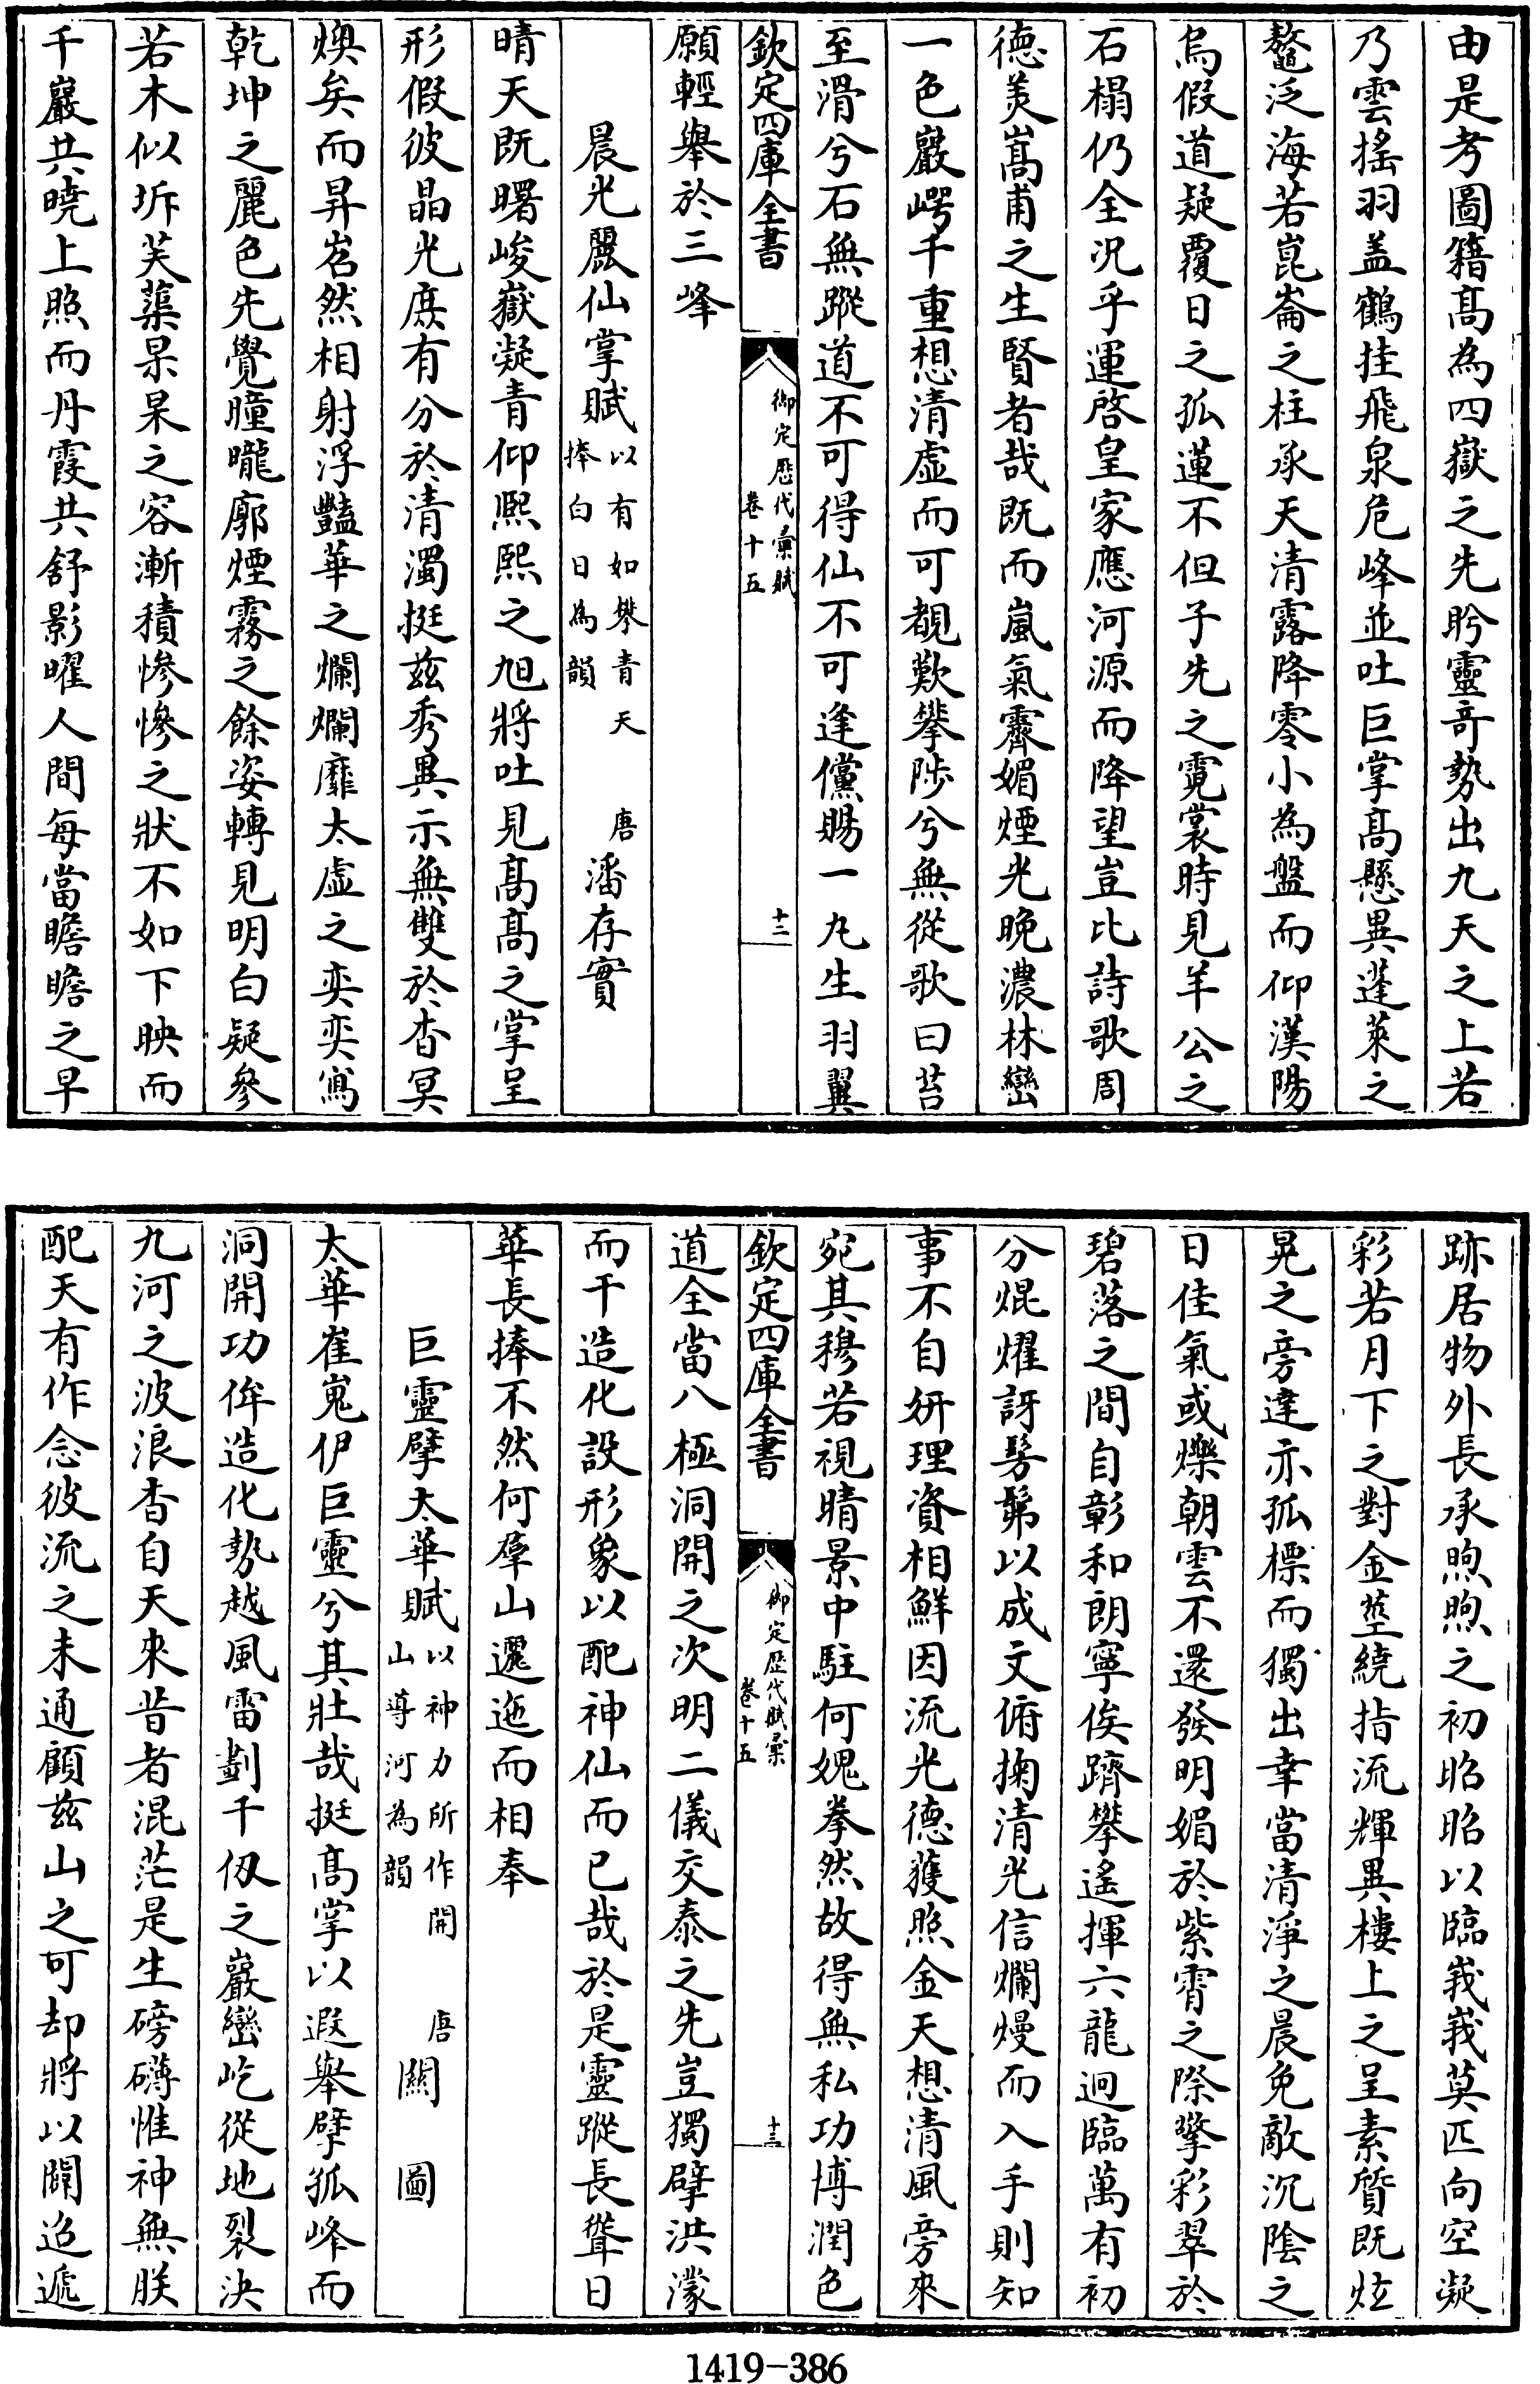 由是考圖籍髙為四嶽之先盻靈竒勢出九天之上若
乃雲搖羽盖鶴挂飛泉危峰並吐巨掌髙懸異蓬萊之
鼇泛海若崑崙之柱承天清露降零小為盤而仰漢陽
烏假道疑覆日之孤蓮不但子先之霓裳時見羊公之
石榻仍全況乎運啓皇家應河源而降望豈比詩歌周
徳羙嵩甫之生賢者哉既而嵐氣霽媚煙光晩濃林巒
一色巖崿千重想清虛而可覩歎攀陟兮無從歌曰苔
至滑兮石無蹤道不可得仙不可逢儻賜一丸生羽翼
欽定四庫全書
御定歴代彚賦
卷十五
十二
願輕舉於三峰
晨光麗仙掌賦以有如攀青天
捧白日為韻
唐潘存實
晴天既曙峻嶽凝青仰熙熙之旭將吐見髙髙之掌呈
形假彼晶光庶有分於清濁挺兹秀異示無雙於杳冥
煥矣而昇岧然相射浮豔華之爛爛靡太虛之奕奕寫
乾坤之麗色先覺曈曨廓煙霧之餘姿轉見明白疑參
若木似坼芙蕖杲杲之容漸積慘慘之狀不如下映而
千巖共曉上照而丹霞共舒影曜人間每當瞻瞻之早
跡居物外長承煦煦之初昭昭以臨峩峩莫匹向空凝
彩若月下之對金莖繞指流輝異樓上之呈素質既炫
晃之旁達亦孤標而獨出幸當清淨之晨免敵沉陰之
日佳氣或爍朝雲不還發明媚於紫霄之際擎彩翠於
碧落之間自彰和朗寧俟躋攀遙揮六龍迥臨萬有初
分焜燿訝髣髴以成文俯掬清光信爛熳而入手則知
事不自妍理資相鮮因流光德獲照金天想清風旁來
宛其穆若視晴景中駐何媿拳然故得無私功博潤色
欽定四庫全書
御定歴代賦彚
卷十五
十三
道全當八極洞開之次明二儀交泰之先豈獨擘洪濛
而干造化設形象以配神仙而已哉於是靈蹤長聳日
華長捧不然何羣山邐迤而相奉
巨靈擘太華賦以神力所作開
山導河為韻
唐闕圖
太華崔嵬伊巨靈兮其壯哉挺髙掌以遐舉擘孤峰而
洞開功侔造化勢越風雷劃千仭之巖巒屹從地裂決
九河之波浪杳自天來昔者混茫是生磅礴惟神無朕
配天有作念彼流之未通顧兹山之可却將以闢迢遞
1419-386